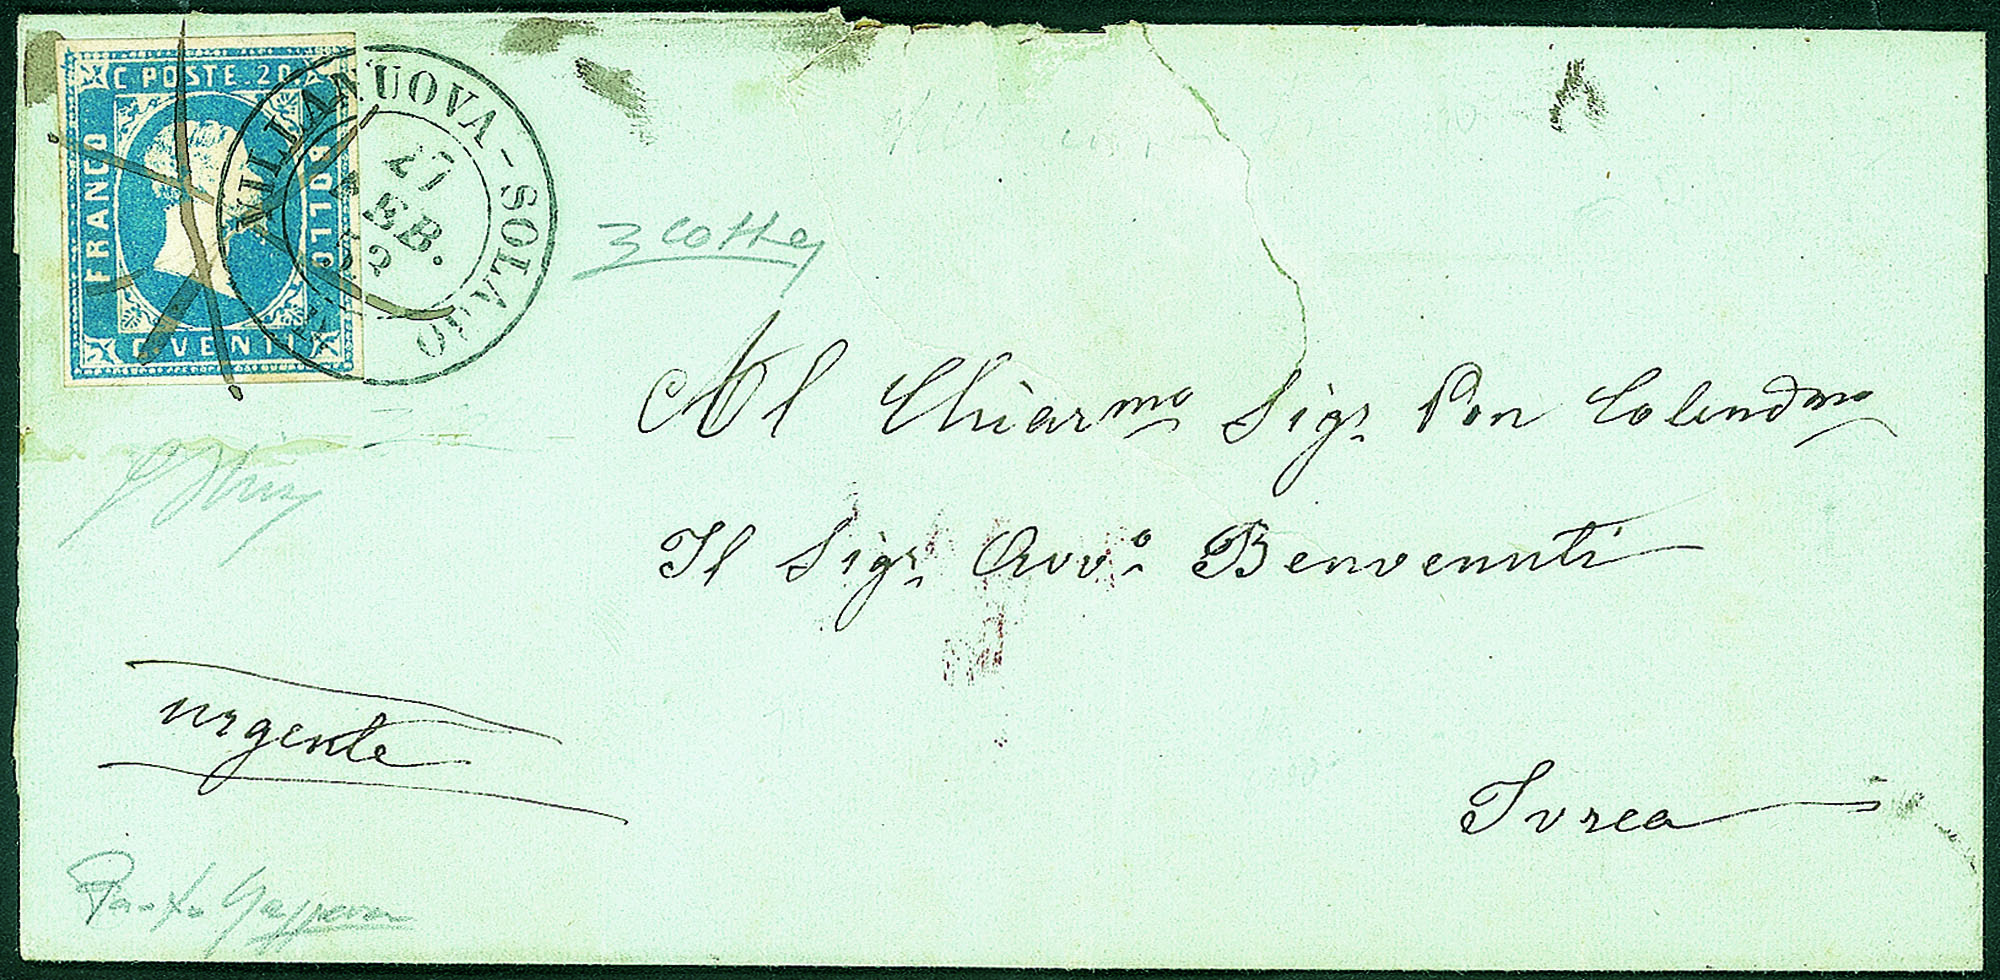 C POSTE. 20.
FRANCO
BOLLO
C VENTI
VILLANUOVA-SOLARO
27
FEB.
52
Al Chiarmo Sigr Pon Colendmo
Il Sigr Avvo Benvenuti
urgente
Ivrea